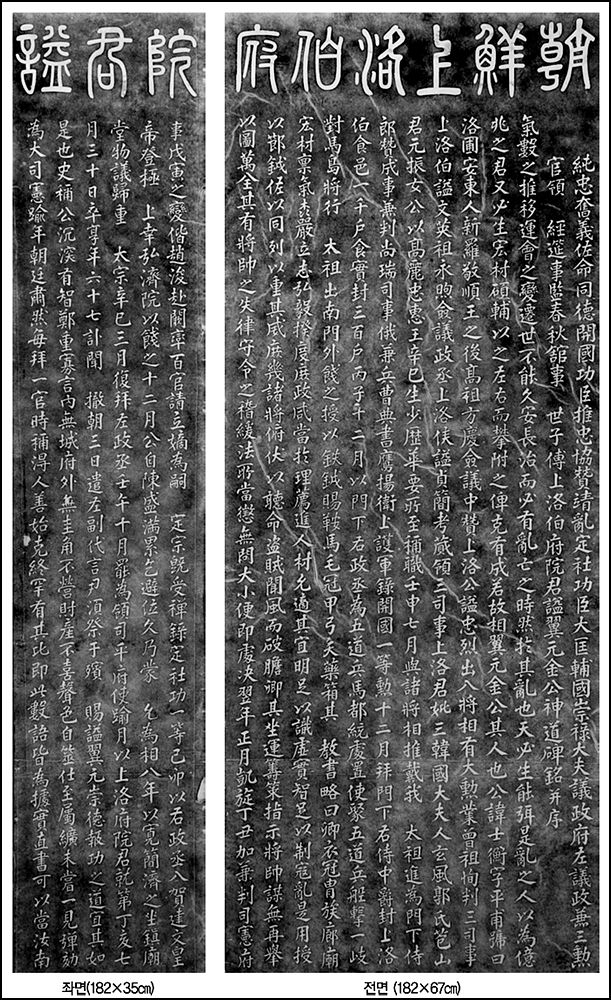 朝鮮上洛伯府
純忠奮義佐命同德開國功臣推忠協贊靖亂定社功臣大匡輔國崇祿大夫議政府左議政兼三勲
官領 經筵事監春秋舘事 世子傅上洛伯府院君謚翼元金公神道碑銘并序
氣數之推移運會之變遷世不能久安長治而必有亂亡之時然於其亂也天必生能弭是亂之人以為億
兆之君又必生宏材碩輔以之左右而攀附之俾克有成若故相翼元金公其人也公諱士衡字平甫號曰
洛圃安東人新羅敬順王之後高祖方慶僉議中贊上洛公謚忠烈出入將相有大勲業曾祖恂判三司事
上洛伯謚文英祖永煦僉議政丞上洛侯謚貞簡考蕆領三司事上洛君妣三韓國大夫人玄風郭氏苞山
君元振女公以高麗忠惠王辛巳生少歷華要所至稱職壬申七月與諸將相推戴我 太祖進為門下侍
郎贊成事兼判尚瑞司事俄兼兵曹典書鷹揚衛上護軍錄開國一等勲十二月拜門下右侍中爵封上洛
伯食邑一千户食實封三百户丙子年二月以門下右政丞為五道兵馬都統處置使聚五道兵船擊一岐
對馬島將行 太祖出南門外餞之授以鈇鉞賜鞍馬毛冠甲弓矢藥箱其 教書略曰卿衣冠冑族廊廟
宏材禀氣英嚴立志弘毅揆度庶政咸當於理薦進人材允適其宜明足以識虛實智足以制寇亂是用授
以節鉞佐以同列以重其威庶幾諸將俯伏以聽命盜賊聞風而破膽卿其坐運籌策指示將帥謀無再舉
以圖萬全其有將帥之失律守令之稽緩法所當懲無問大小便即處決翌年正月凱旋丁丑加兼判司憲府
전면 (182×67㎝)
院君謚
事戊寅之變偕趙浚赴闕率百官請立嫡為嗣 定宗旣受禪錄定社功一等己卯以右政丞入賀建文皇
帝登極 上幸弘濟院以餞之十二月公自陳盛滿累乞避位久乃蒙 允為相八年以寬簡濟之坐鎮廟
堂物議歸重 太宗辛巳三月復拜左政丞壬午十月罷為領司平府使踰月以上洛府院君就第丁亥七
月三十日卒享年六十七訃聞 撤朝三日遣左副代言尹須祭于殯 賜謚翼元崇德報功之道宜其如
是也史稱公沉深有智鄭重寡言內無城府外無圭角不營財產不喜聲色自筮仕至屬纊未嘗一見彈劾
為大司憲踰年朝廷肅然每拜一官時稱得人善始克終罕有其比即此數語皆為據實直書可以當汝南
좌면(182×35㎝)